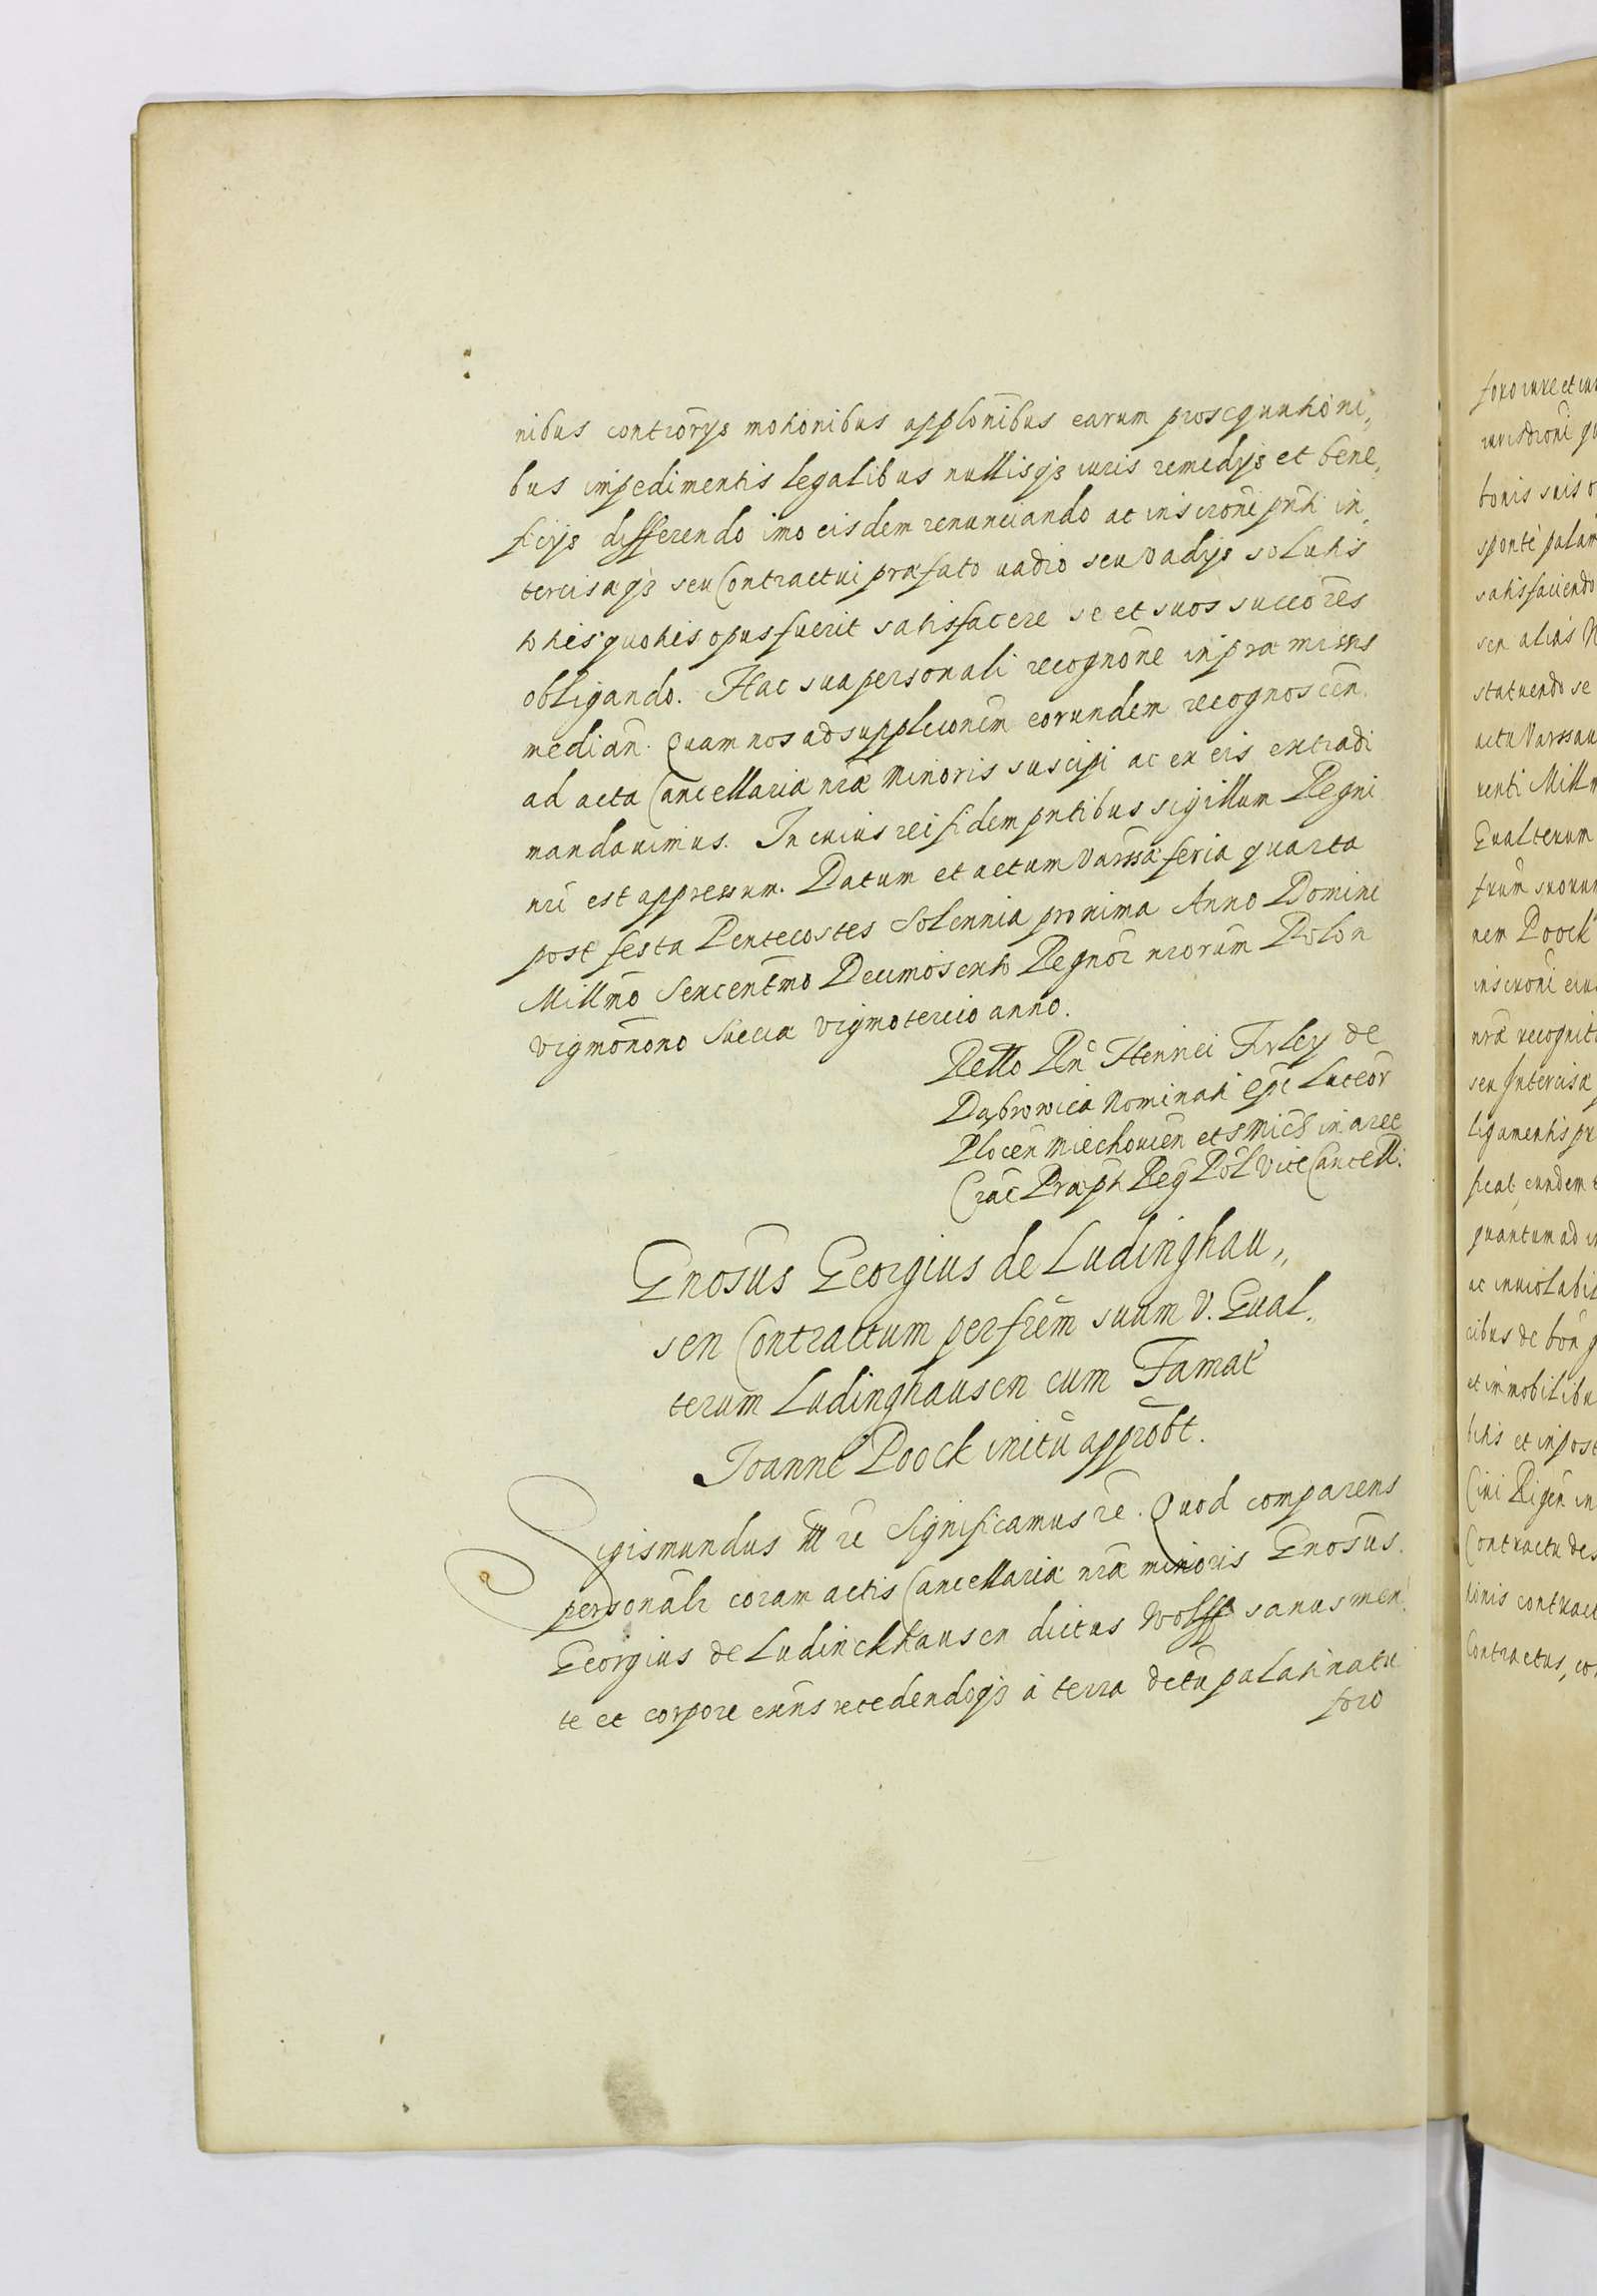 nibus contrōrys motionibus applōnibus earum prosequutioni,
bus impedimentis legalibus nullisqꝫ iuris remedys et bene,
ficys differendo imo eisdem renunciando ac inscrōni pn̄ti in,
tercisæqꝫ seu Contractui præfato vadio seu vadys solutis
toties quoties opus fuerit satisfacere se et suos succōres
obligando. Hac sua personali recognōne in præmissis
median̄. Quam nos ad supplicōnem eorundem recognoscen̄.
ad acta Cancellariæ nr̄æ Minoris suscipi ac ex eis extradi
mandavimus. In cuius rei fidem pn̄tibus sigillum Regni
nr̄i est appressum. Datum et actum Varssæ feria quarta
post festa Pentecostes Solennia proxima Anno Domini
Millm̄o Sexcentm̄o Decimosexto Regnor̄ nr̄orum Polon
vigmōnono Sueciæ vigmotercio anno.
Rello Rn̄ Henrici Firley de
Dąbrowica Nominati Epī Luceor̄
Plocen̄ Miechovien̄ et S Mich in arce
Crac̄ Præpti Reg Pōl Vice Cancell.
Gnosūs Georgius de Ludinghau,,
sen Contractum per frēm suum V. Gual,
terum Ludinghausen cum Famat
Joanne Poock initū approbt̄.
Sigismundus III rē Significamus rē. Quod comparens
personalr̄ coram actis Cancellariæ nr̄æ minoris Gnosūs.
Georgius de Ludinckhausen dictus Wolff sanus men,
te et corpore exn̄s recedendoqꝫ à terra dctū palatinatu
foro
foro iure et
iurisdctoni
bonis suis
sponte palam
satisfaciendo
seu alias
statuendo se
actu Varssav
renti Mill
Gualterum
frum suorum
nem Poock
inscrōni
nr̄a recognit
seu Intercisa
ligamentis
ficat, eundem
quantum ad
ac inviolabil
cibus de
et immobilibu
et in post
Civi Rigen̄ in
Contractu des
tionis contract
Contractus, co